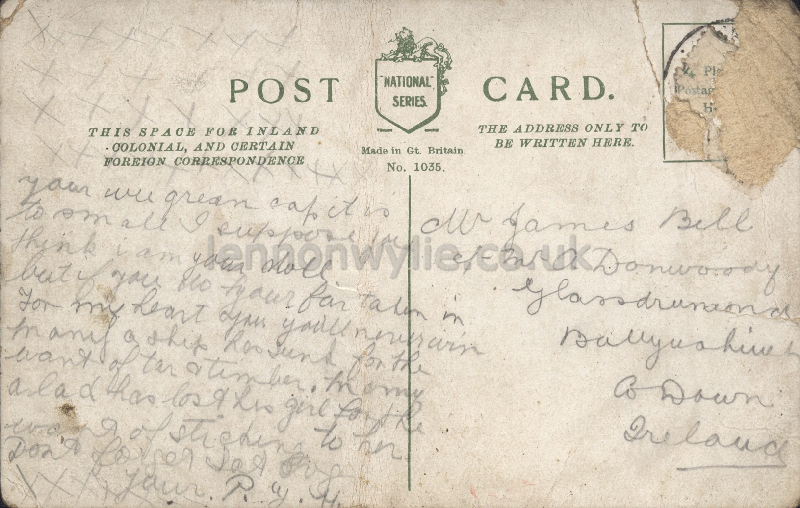 POST CARD.
"NATIONAL"
SERIES.
THIS SPACE FOR INLAND
COLONIAL, AND CERTAIN
FOREIGN CORRESPONDENCE
Made in Gt. Britain
No. 1035.
THE ADDRESS ONLY TO
BE WRITTEN HERE.
your wee green cap it is
to small I suppose you
think i am your doll
but if you do your far taken in
For my heart you you'll never win
many a ship has sunk for the
want of tar & timber. many
a lad has lost his girl for the
want of sticking to her.
Don't forget
your. P. y. H.
Mr James Bell
Donwoody
Glassdrumond
Co Down
Ireland
lennonwylie.co.uk